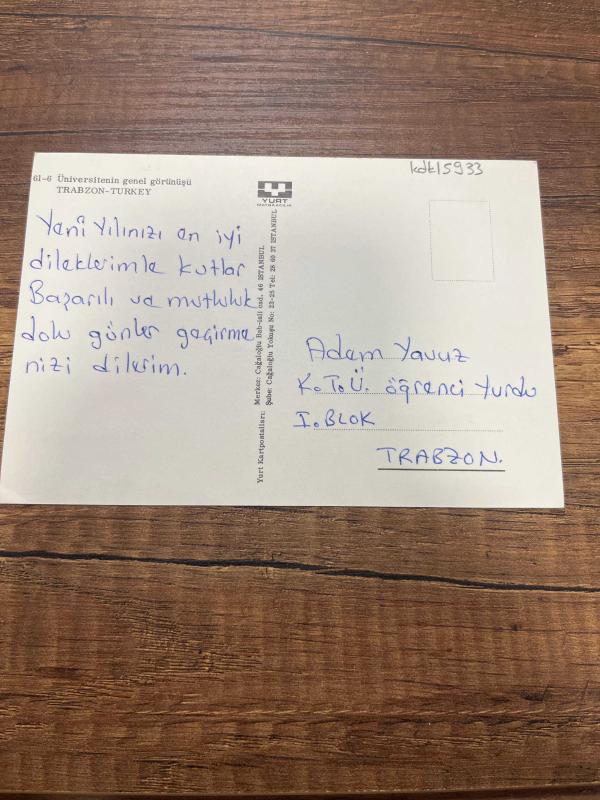 kdk15933
61-6 Üniversitenin genel görünüşü
TRABZON-TURKEY
YURT
MATBAACILIK
Yeni Yılınızı en iyi
dileklerimle kutlar
Başarılı ve mutluluk
dolu günler geçirme
nizi dilerim.
Yurt Kartpostalları: Merkez: Cağaloğlu Bab-ıali cad. 46 İSTANBUL
Şube: Cağaloğlu Yokuşu No: 23-25 Tel: 28 60 37 İSTANBUL
Adem Yavuz
K.T.Ü. öğrenci Yurdu
I. BLOK
TRABZON.